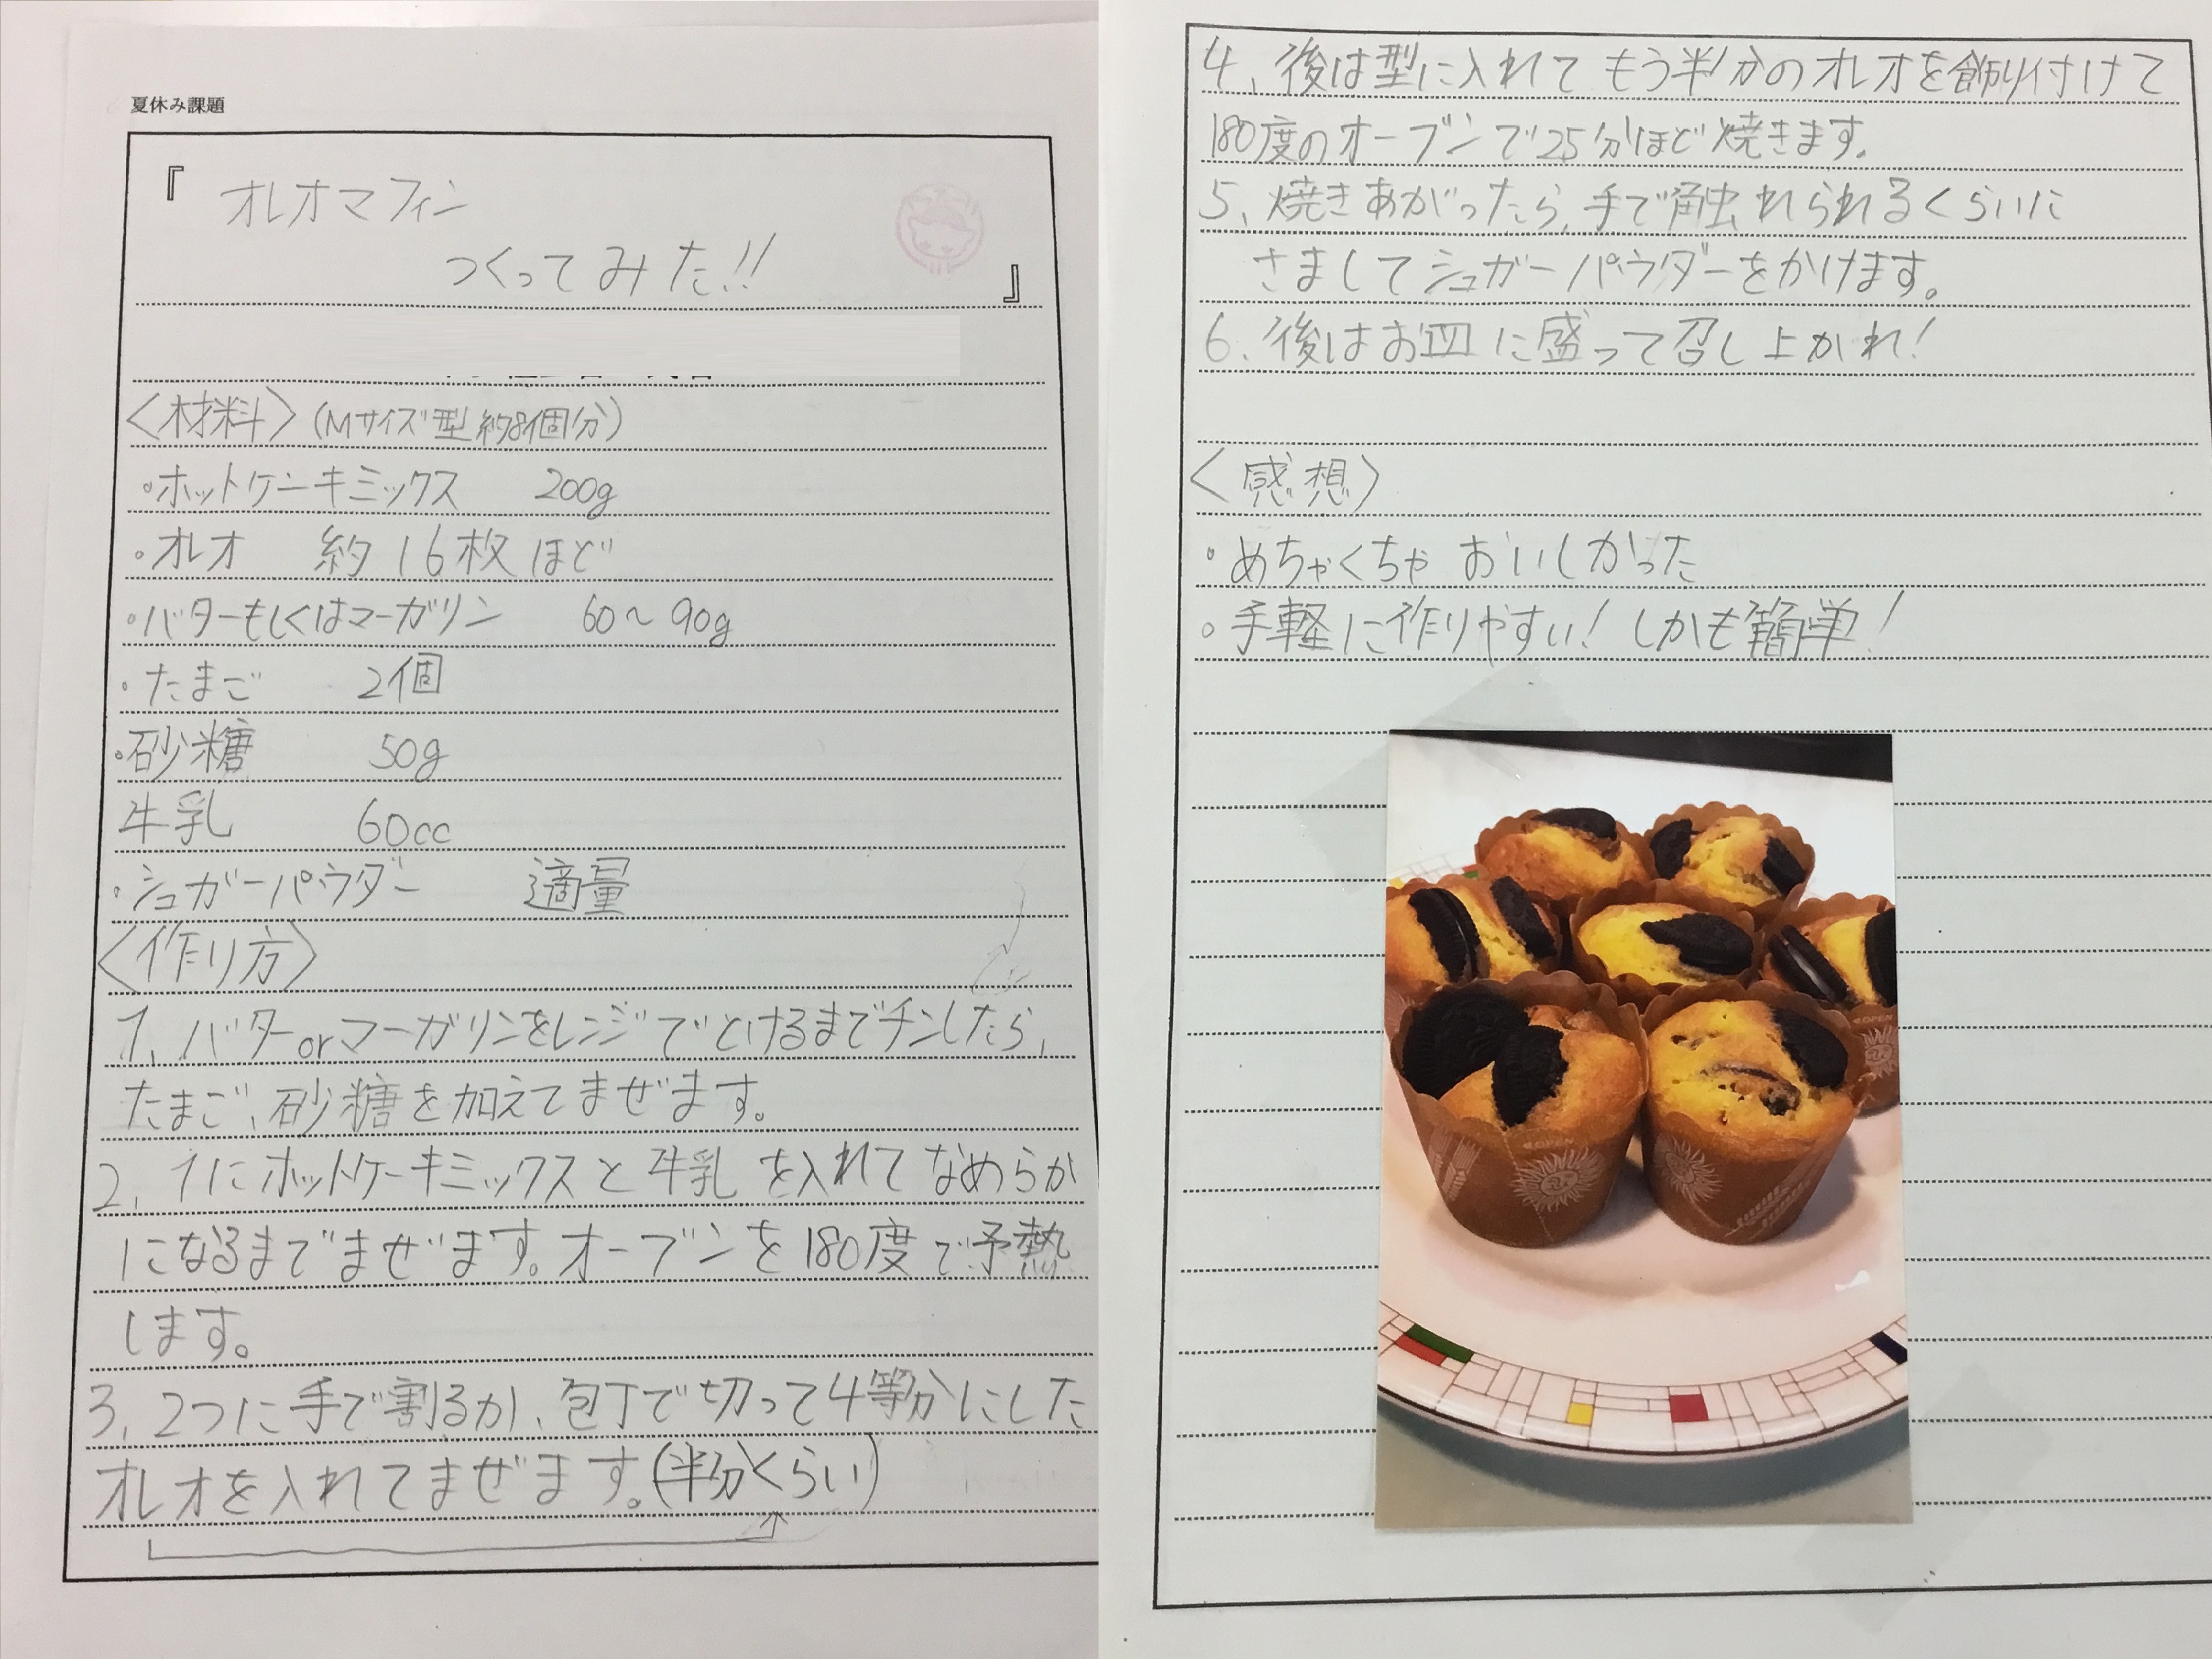 夏休み課題
『オレオマフィン
つくってみた!!』
〈材料〉(Mサイズ型 約8個分)
・ホットケーキミックス 200g
・オレオ 約16枚ほど
・バターもしくはマーガリン 60〜90g
・たまご 2個
・砂糖 50g
牛乳 60cc
・シュガーパウダー 適量
〈作り方〉
1、バターorマーガリンをレンジでとけるまでチンしたら、
たまご、砂糖を加えてまぜます。
2、1にホットケーキミックスと牛乳を入れてなめらか
になるまでまぜます。オーブンを180度で予熱
します。
3、2つに手で割るか、包丁で切って4等分にした
オレオを入れてまぜます。(半分くらい)
4、後は型に入れてもう半分のオレオを飾り付けて
180度のオーブンで25分ほど焼きます。
5、焼きあがったら、手で触れられるくらいに
さましてシュガーパウダーをかけます。
6、後はお皿に盛って召し上がれ!
〈感想〉
・めちゃくちゃおいしかった
・手軽に作りやすい!しかも簡単!
OPEN
OPEN